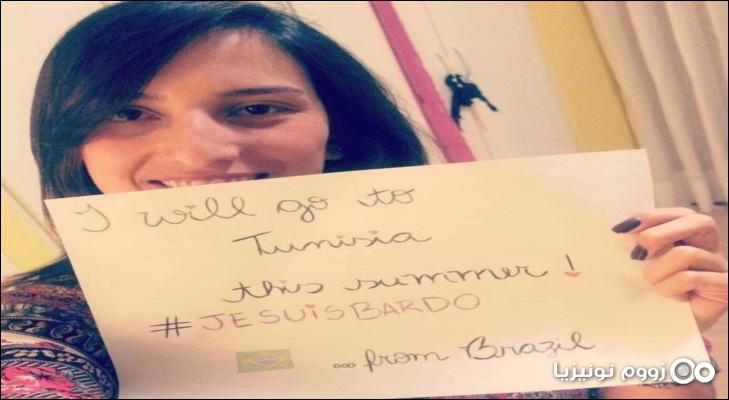 I will go to
Tunisia
this summer!
#JESUISBARDO
...from Brazil
زووم تونيزيا